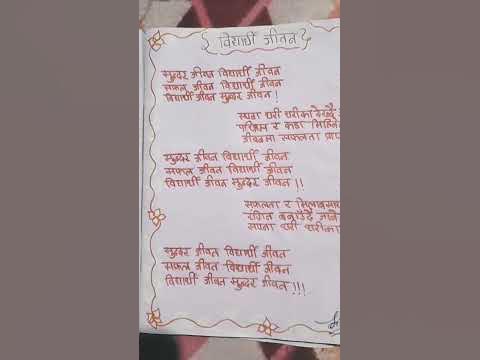 विद्यार्थी जीवन
सुन्दर जीवन विद्यार्थी जीवन
सफल जीवन विद्यार्थी जीवन
विद्यार्थी जीवन सुन्दर जीवन !
सपना थरी थरीका देख्दै
परिश्रम र कडा मिहिने
जीवनमा सफलता प्राप
सुन्दर जीवन विद्यार्थी जीवन
सफल जीवन विद्यार्थी जीवन
विद्यार्थी जीवन सुन्दर जीवन !!
सफलता र
रंगिन बनाउँदै जाने
सपना थरी थरीका
सुन्दर जीवन विद्यार्थी जीवन
सफल जीवन विद्यार्थी जीवन
विद्यार्थी जीवन सुन्दर जीवन !!!